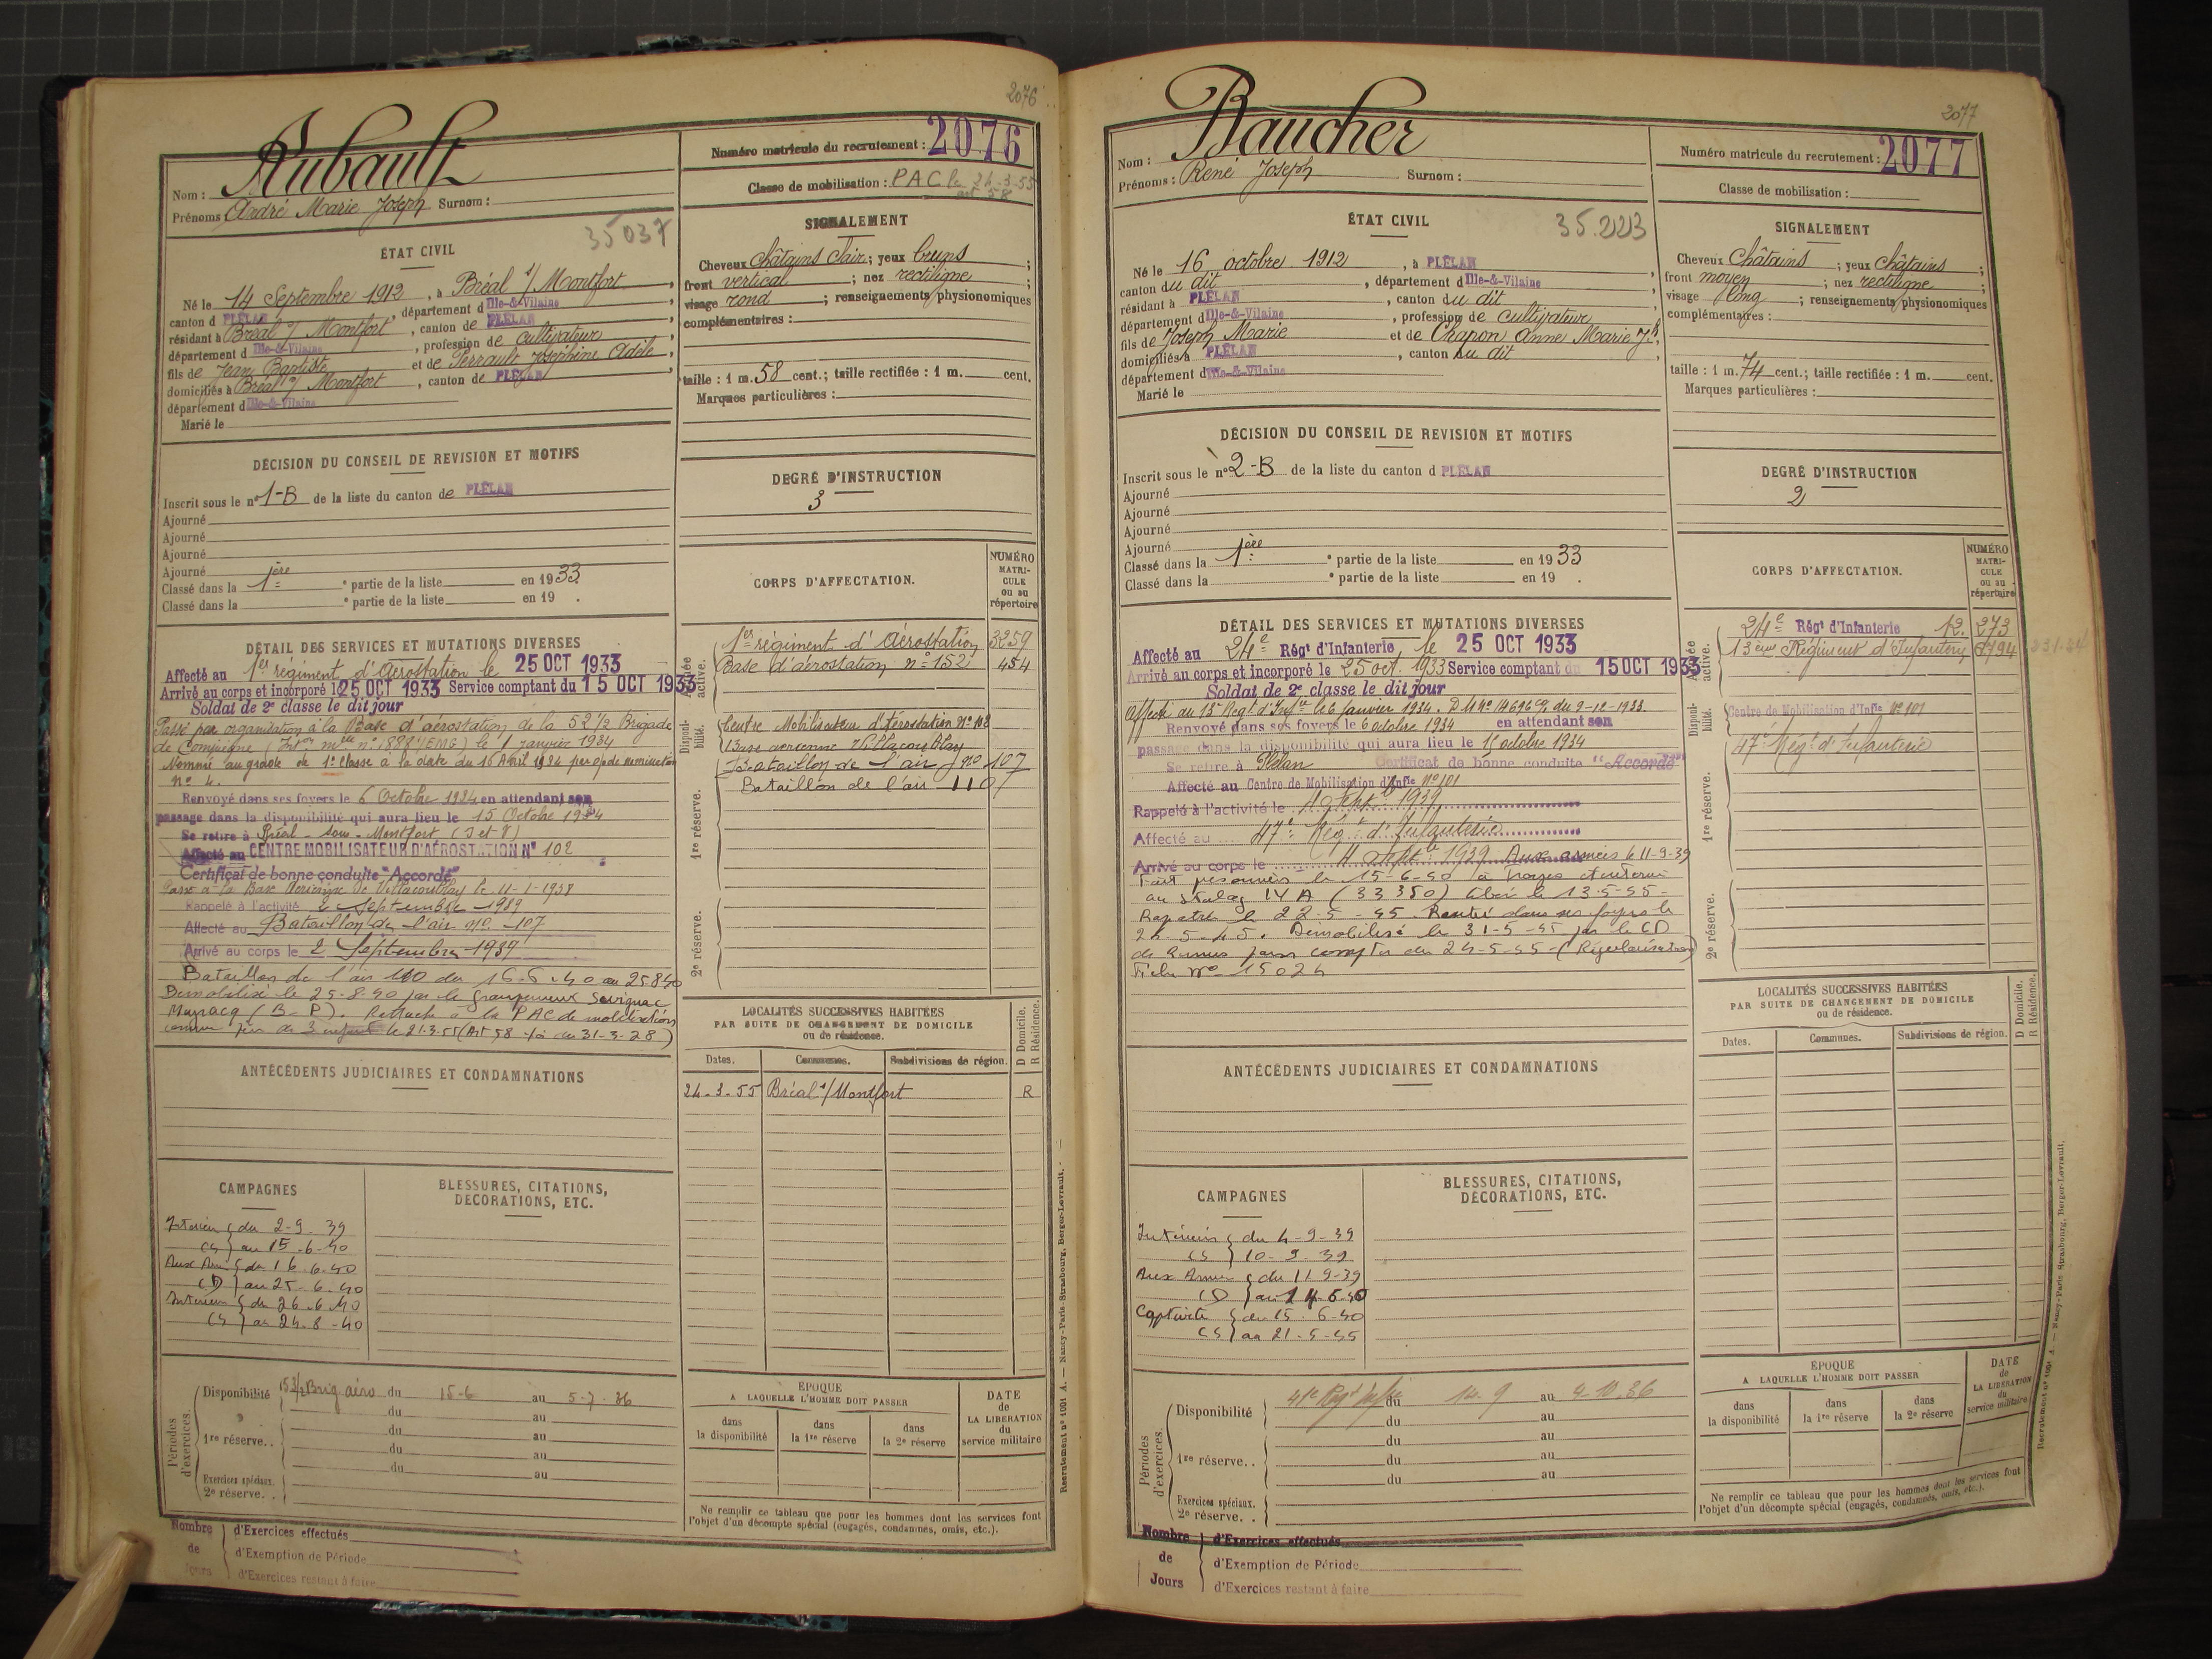 2076
Aubault
Nom :
Prénoms André Marie Joseph Surnom :
Numéro matricule du recrutement : 2076
Classe de mobilisation : PAC le 24-3-55
art 58
35037
ÉTAT CIVIL
Né le 14 Septembre 1912, à Bréal s/ Montfort,
canton d PLÉLAN, département d Ille-&-Vilaine
résidant à Bréal s/ Montfort, canton de PLÉLAN
département d Ille-&-Vilaine, profession de cultivateur
fils de Jean Baptiste et de Perrault Joséphine Adèle,
domiciliés à Bréal s/ Montfort, canton de PLÉLAN
département d Ille-&-Vilaine
Marié le
SIGNALEMENT
Cheveux châtains clair ; yeux bruns ;
front vertical ; nez rectiligne ;
visage rond ; renseignements physionomiques
complémentaires :
taille : 1 m. 58 cent. ; taille rectifiée : 1 m. cent.
Marques particulières :
DÉCISION DU CONSEIL DE REVISION ET MOTIFS
Inscrit sous le n° 1-B de la liste du canton de PLÉLAN
Ajourné
Ajourné
Ajourné
Ajourné
Classé dans la 1ère ° partie de la liste en 1933.
Classé dans la ° partie de la liste en 19 .
DEGRÉ D'INSTRUCTION
3
DÉTAIL DES SERVICES ET MUTATIONS DIVERSES
Affecté au 1er régiment d'Aérostation le 25 OCT 1933
Arrivé au corps et incorporé le 25 OCT 1933 Service comptant du 15 OCT 1933
Soldat de 2e classe le dit jour
Passé par organisation à la Base d'aérostation de la 52 1/2 Brigade
de Compiègne le 1 janvier 1934
Nommé au grade de 1e classe à la date du 16 Avril 1934 par op de nomination
n° 4.
Renvoyé dans ses foyers le 6 Octobre 1934 en attendant son
passage dans la disponibilité qui aura lieu le 15 Octobre 1934
Se retire à Bréal-sous-Montfort (I et V)
Affecté au CENTRE MOBILISATEUR D'AÉROSTATION N° 102
Certificat de bonne conduite "Accordé"
Passé à la Base Aérienne de Villacoublay le 11-1-1938
Rappelé à l'activité 2 Septembre 1939
Affecté au Bataillon de l'air n° 107
Arrivé au corps le 2 Septembre 1939
Bataillon de l'air 110 du 16-6-40 au 25-8-40
Démobilisé le 25-8-40 par le groupement Sévignac
Meyracq (B-P). Rattaché à la PAC de mobilisation
comme père de 3 enfants le 21-3-55 (Art 58 loi du 31-3-28)
CORPS D'AFFECTATION.
NUMÉRO MATRICULE ou au répertoire
Armée active.
1er régiment d'Aérostation 3259
Base d'aérostation n° 152 454
Disponibilité.
Centre Mobilisateur d'Aérostation N° 102
Base aérienne Villacoublay
1re réserve.
Bataillon de l'air n° 107
Bataillon de l'air 110
2e réserve.
LOCALITÉS SUCCESSIVES HABITÉES
PAR SUITE DE CHANGEMENT DE DOMICILE
ou de résidence.
Dates. Communes. Subdivisions de région. D Domicile. R Résidence.
24-3-55 Bréal s/ Montfort R
ANTÉCÉDENTS JUDICIAIRES ET CONDAMNATIONS
CAMPAGNES
Intérieur du 2-9-39
CS au 15-6-40
Aux Arm du 16-6-40
CD au 25-6-40
Intérieur du 26-6-40
CS au 24-8-40
BLESSURES, CITATIONS,
DÉCORATIONS, ETC.
Périodes d'exercices.
Disponibilité Brig aéro du 15-6 au 5-7-36
du au
1re réserve. . du au
du au
du au
Exercices spéciaux.
2e réserve. .
ÉPOQUE
A LAQUELLE L'HOMME DOIT PASSER
dans la disponibilité
dans la 1re réserve
dans la 2e réserve
DATE de LA LIBÉRATION du service militaire
Ne remplir ce tableau que pour les hommes dont les services font
l'objet d'un décompte spécial (engagés, condamnés, omis, etc.).
Nombre de Jours
d'Exercices effectués
d'Exemption de Période
d'Exercices restant à faire
Recrutement n° 1001 A. — Nancy-Paris-Strasbourg, Berger-Levrault.
2077
Baucher
Nom :
Prénoms : René Joseph Surnom :
Numéro matricule du recrutement : 2077
Classe de mobilisation :
ÉTAT CIVIL
35.223
Né le 16 octobre 1912, à PLÉLAN
canton du dit, département d Ille-&-Vilaine
résidant à PLÉLAN, canton du dit
département d Ille-&-Vilaine, profession de cultivateur
fils de Joseph Marie et de Chapon Anne Marie Jh,
domiciliés à PLÉLAN, canton du dit
département d Ille-&-Vilaine
Marié le
SIGNALEMENT
Cheveux Châtains ; yeux châtains ;
front moyen ; nez rectiligne ;
visage long ; renseignements physionomiques
complémentaires :
taille : 1 m. 74 cent. ; taille rectifiée : 1 m. cent.
Marques particulières :
DÉCISION DU CONSEIL DE REVISION ET MOTIFS
Inscrit sous le n° 2-B de la liste du canton d PLÉLAN
Ajourné
Ajourné
Ajourné
Ajourné
Classé dans la 1ère ° partie de la liste en 1933
Classé dans la ° partie de la liste en 19 .
DEGRÉ D'INSTRUCTION
2
DÉTAIL DES SERVICES ET MUTATIONS DIVERSES
Affecté au 24e Régt d'Infanterie, le 25 OCT 1933
Arrivé au corps et incorporé le 25 oct. 1933 Service comptant du 15 OCT 1933
Soldat de 2e classe le dit jour
Affecté au 13e Régt d'Infie le 6 janvier 1934. du 9-12-1933.
Renvoyé dans ses foyers le 6 octobre 1934 en attendant son
passage dans la disponibilité qui aura lieu le 15 octobre 1934
Se retire à Plélan Certificat de bonne conduite "Accordé"
Affecté au Centre de Mobilisation d'Infie N° 101
Rappelé à l'activité le 4 Sept. 1939
Affecté au 47e Régt d'Infanterie
Arrivé au corps le 4 Sept. 1939 Aux armées le 11-9-39
Fait prisonnier le 15-6-40 à Troyes et interné
au Stalag IV A (33350) libéré le 13-5-45-
Rapatrié le 22-5-45. Rentré dans ses foyers le
24-5-45. Démobilisé le 31-5-45 par le CD
de Rennes pour compter du 24-5-45-(Régularisation)
Fiche n° 15024
CORPS D'AFFECTATION.
NUMÉRO MATRICULE ou au répertoire
Armée active.
24e Régt d'Infanterie 12. 273
13ème Régiment d'Infanterie
Disponibilité.
Centre de Mobilisation d'Infie N° 101
1re réserve.
47e Régt d'Infanterie
2e réserve.
LOCALITÉS SUCCESSIVES HABITÉES
PAR SUITE DE CHANGEMENT DE DOMICILE
ou de résidence.
Dates. Communes. Subdivisions de région. D Domicile. R Résidence.
ANTÉCÉDENTS JUDICIAIRES ET CONDAMNATIONS
CAMPAGNES
Intérieur du 4-9-39
CS 10-9-39
Aux Armées du 11-9-39
CD au 14-6-40
Captivité du 15-6-40
CS au 21-5-45
BLESSURES, CITATIONS,
DÉCORATIONS, ETC.
Périodes d'exercices.
Disponibilité 41e Régt Infie du 14-9 au 4-10-36
du au
du au
1re réserve. . du au
du au
Exercices spéciaux.
2e réserve. .
ÉPOQUE
A LAQUELLE L'HOMME DOIT PASSER
dans la disponibilité
dans la 1re réserve
dans la 2e réserve
DATE de LA LIBÉRATION du service militaire
Ne remplir ce tableau que pour les hommes dont les services font
l'objet d'un décompte spécial (engagés, condamnés, omis, etc.).
Nombre de Jours
d'Exercices effectués
d'Exemption de Période
d'Exercices restant à faire
Recrutement n° 1001 A. — Nancy-Paris-Strasbourg, Berger-Levrault.